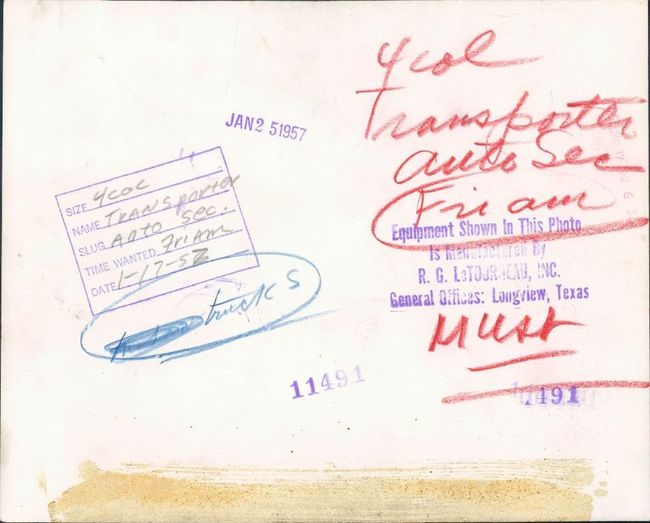 4 col
Transporter
Auto Sec
Fri am
JAN 2 5 1957
SIZE 4 COL
NAME TRANSporter
SLUG AUTO SEC.
TIME WANTED Fri AM
DATE 1-17-57
trucks
Equipment Shown In This Photo
Is Manufactured By
R. G. LeTOURNEAU, INC.
General Offices: Longview, Texas
MUST
11491
11491